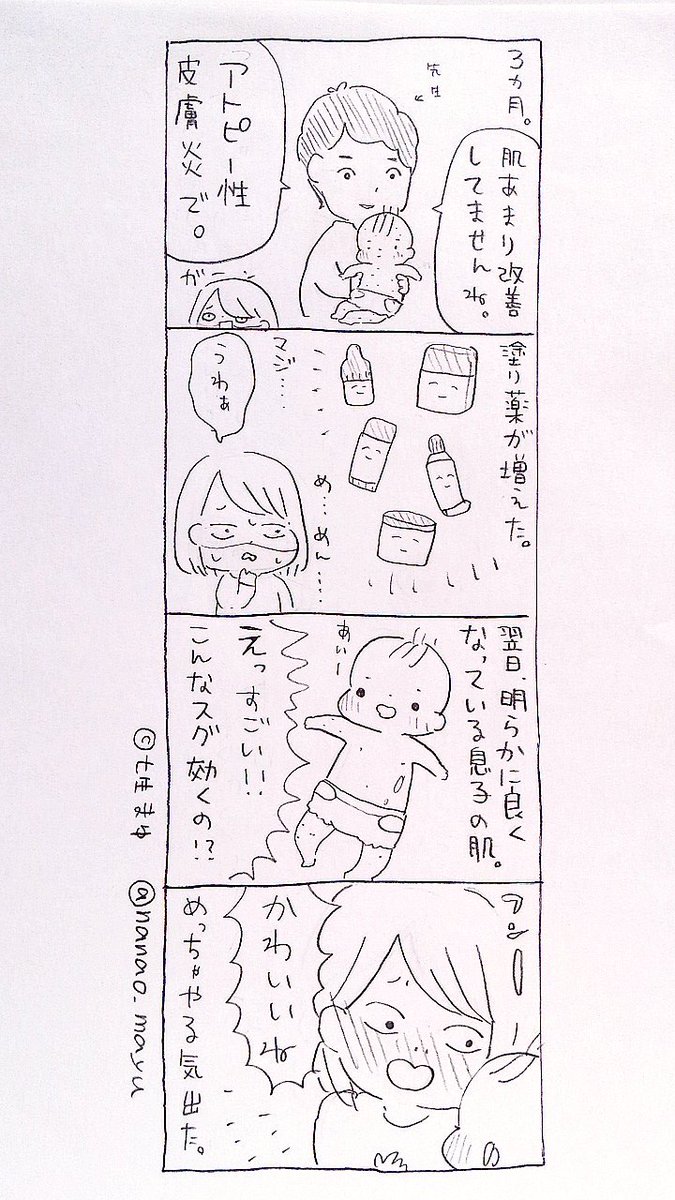 3ヵ月。
肌あまり改善
してませんね。
先生
アトピー性
皮膚炎で。
ガーン
塗り薬が増えた。
め…めん……
マジ……
うわぁ
翌日、明らかに良く
なっている息子の肌。
あいー
えっすごい!!
こんなスグ効くの!?
かわいいね
めっちゃやる気出た。
@nanao.mayu